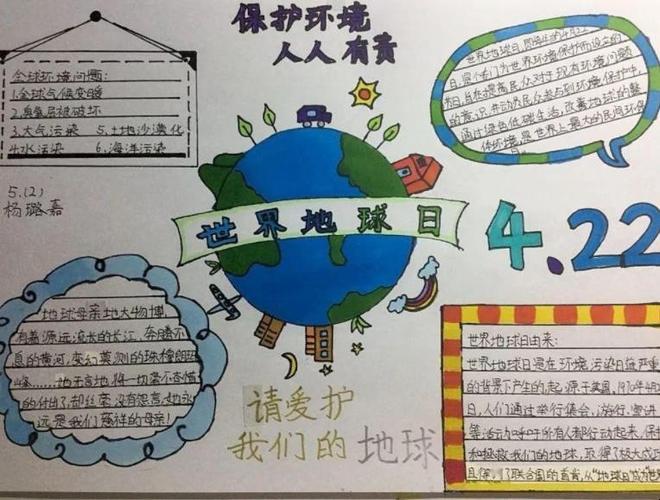 保护环境
人人有责
全球环境问题:
1.全球气候变暖
2.臭氧层被破坏
3.大气污染 5.土地沙漠化
4.水污染 6.海洋污染
5.(2)
杨璐嘉
世界地球日,即每年的4月22
日,是
世界环境保护
民众对于现有环境问题
的意识,并动员民众参与到环境保护中,
通过绿色低碳生活,改善地球的整
体环境,是世界上最大的民间环保
世界地球日
4.22
地球母亲地大物博,
有着源远流长的长江,奔腾不
息的黄河,变幻莫测的珠穆朗玛
峰……她无言地将一切毫不吝惜
的付出了,却丝毫没有怨言,她永
远是我们慈祥的母亲!
请爱护
我们的地球
世界地球日由来:
世界地球日是在环境污染日益严重
的背景下产生的,起源于美国,1970年4月2
日,人们通过举行集会、游行、宣讲
等活动,呼吁所有人都行动起来,保护
和拯救我们的地球,取得了极大成功
了联合国的首肯,从"地球日"成为